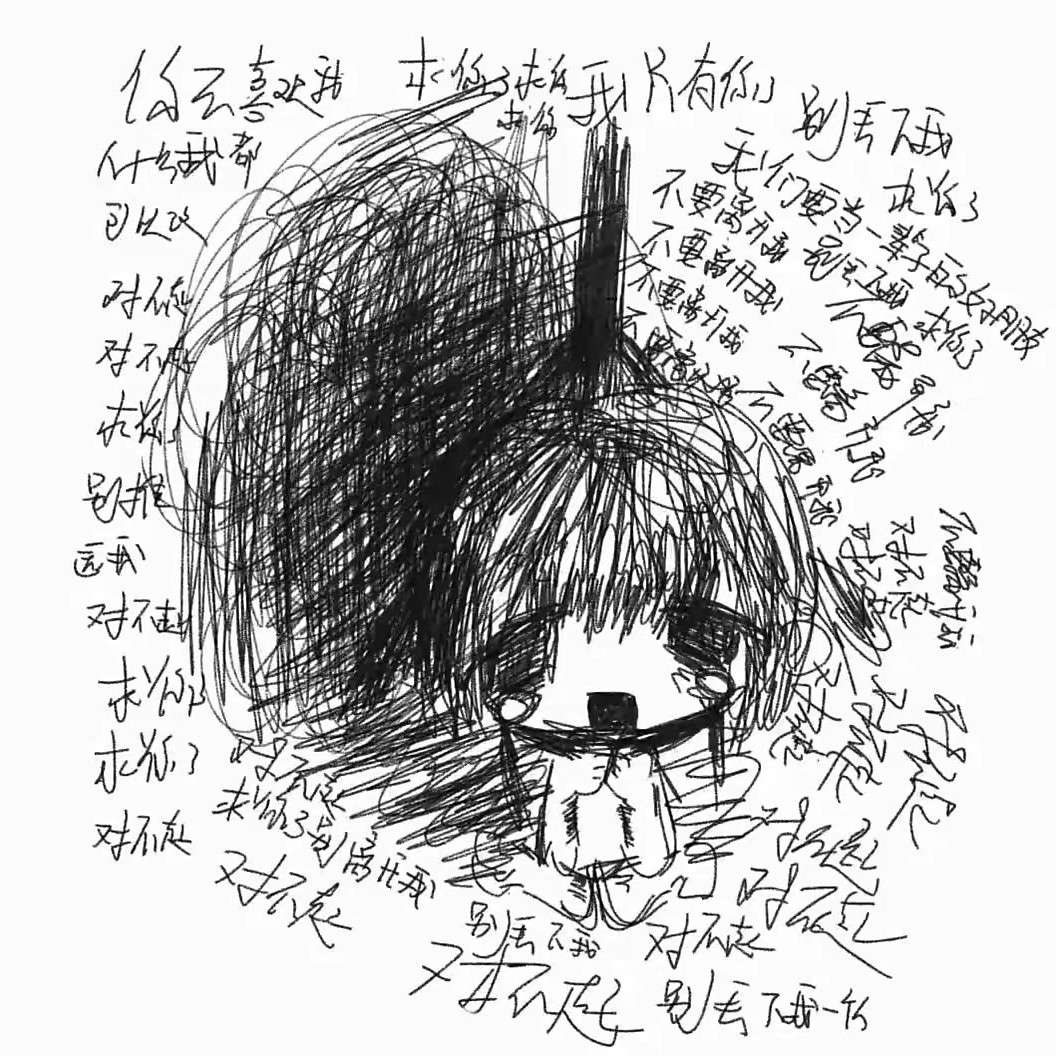 你不喜欢我
什么我都
可以改
对不起
对不起
求你了
别推
远我
对不起
求你了
求你了
对不起
求你了求你
求你
我只有你了
别丢下我
求你了
我们要当一辈子的好朋友
不要离开我 别丢下我 求你了
不要离开我
不要离开我
不要离开我
不要离开我
不要离开我
不要离开我
不要离开我
对不起
对不起
对不起
对不起
对不起
对不起
求你了别离开我
对不起
对不起
对不起
别丢下我
对不起
对不起
别丢下我一个